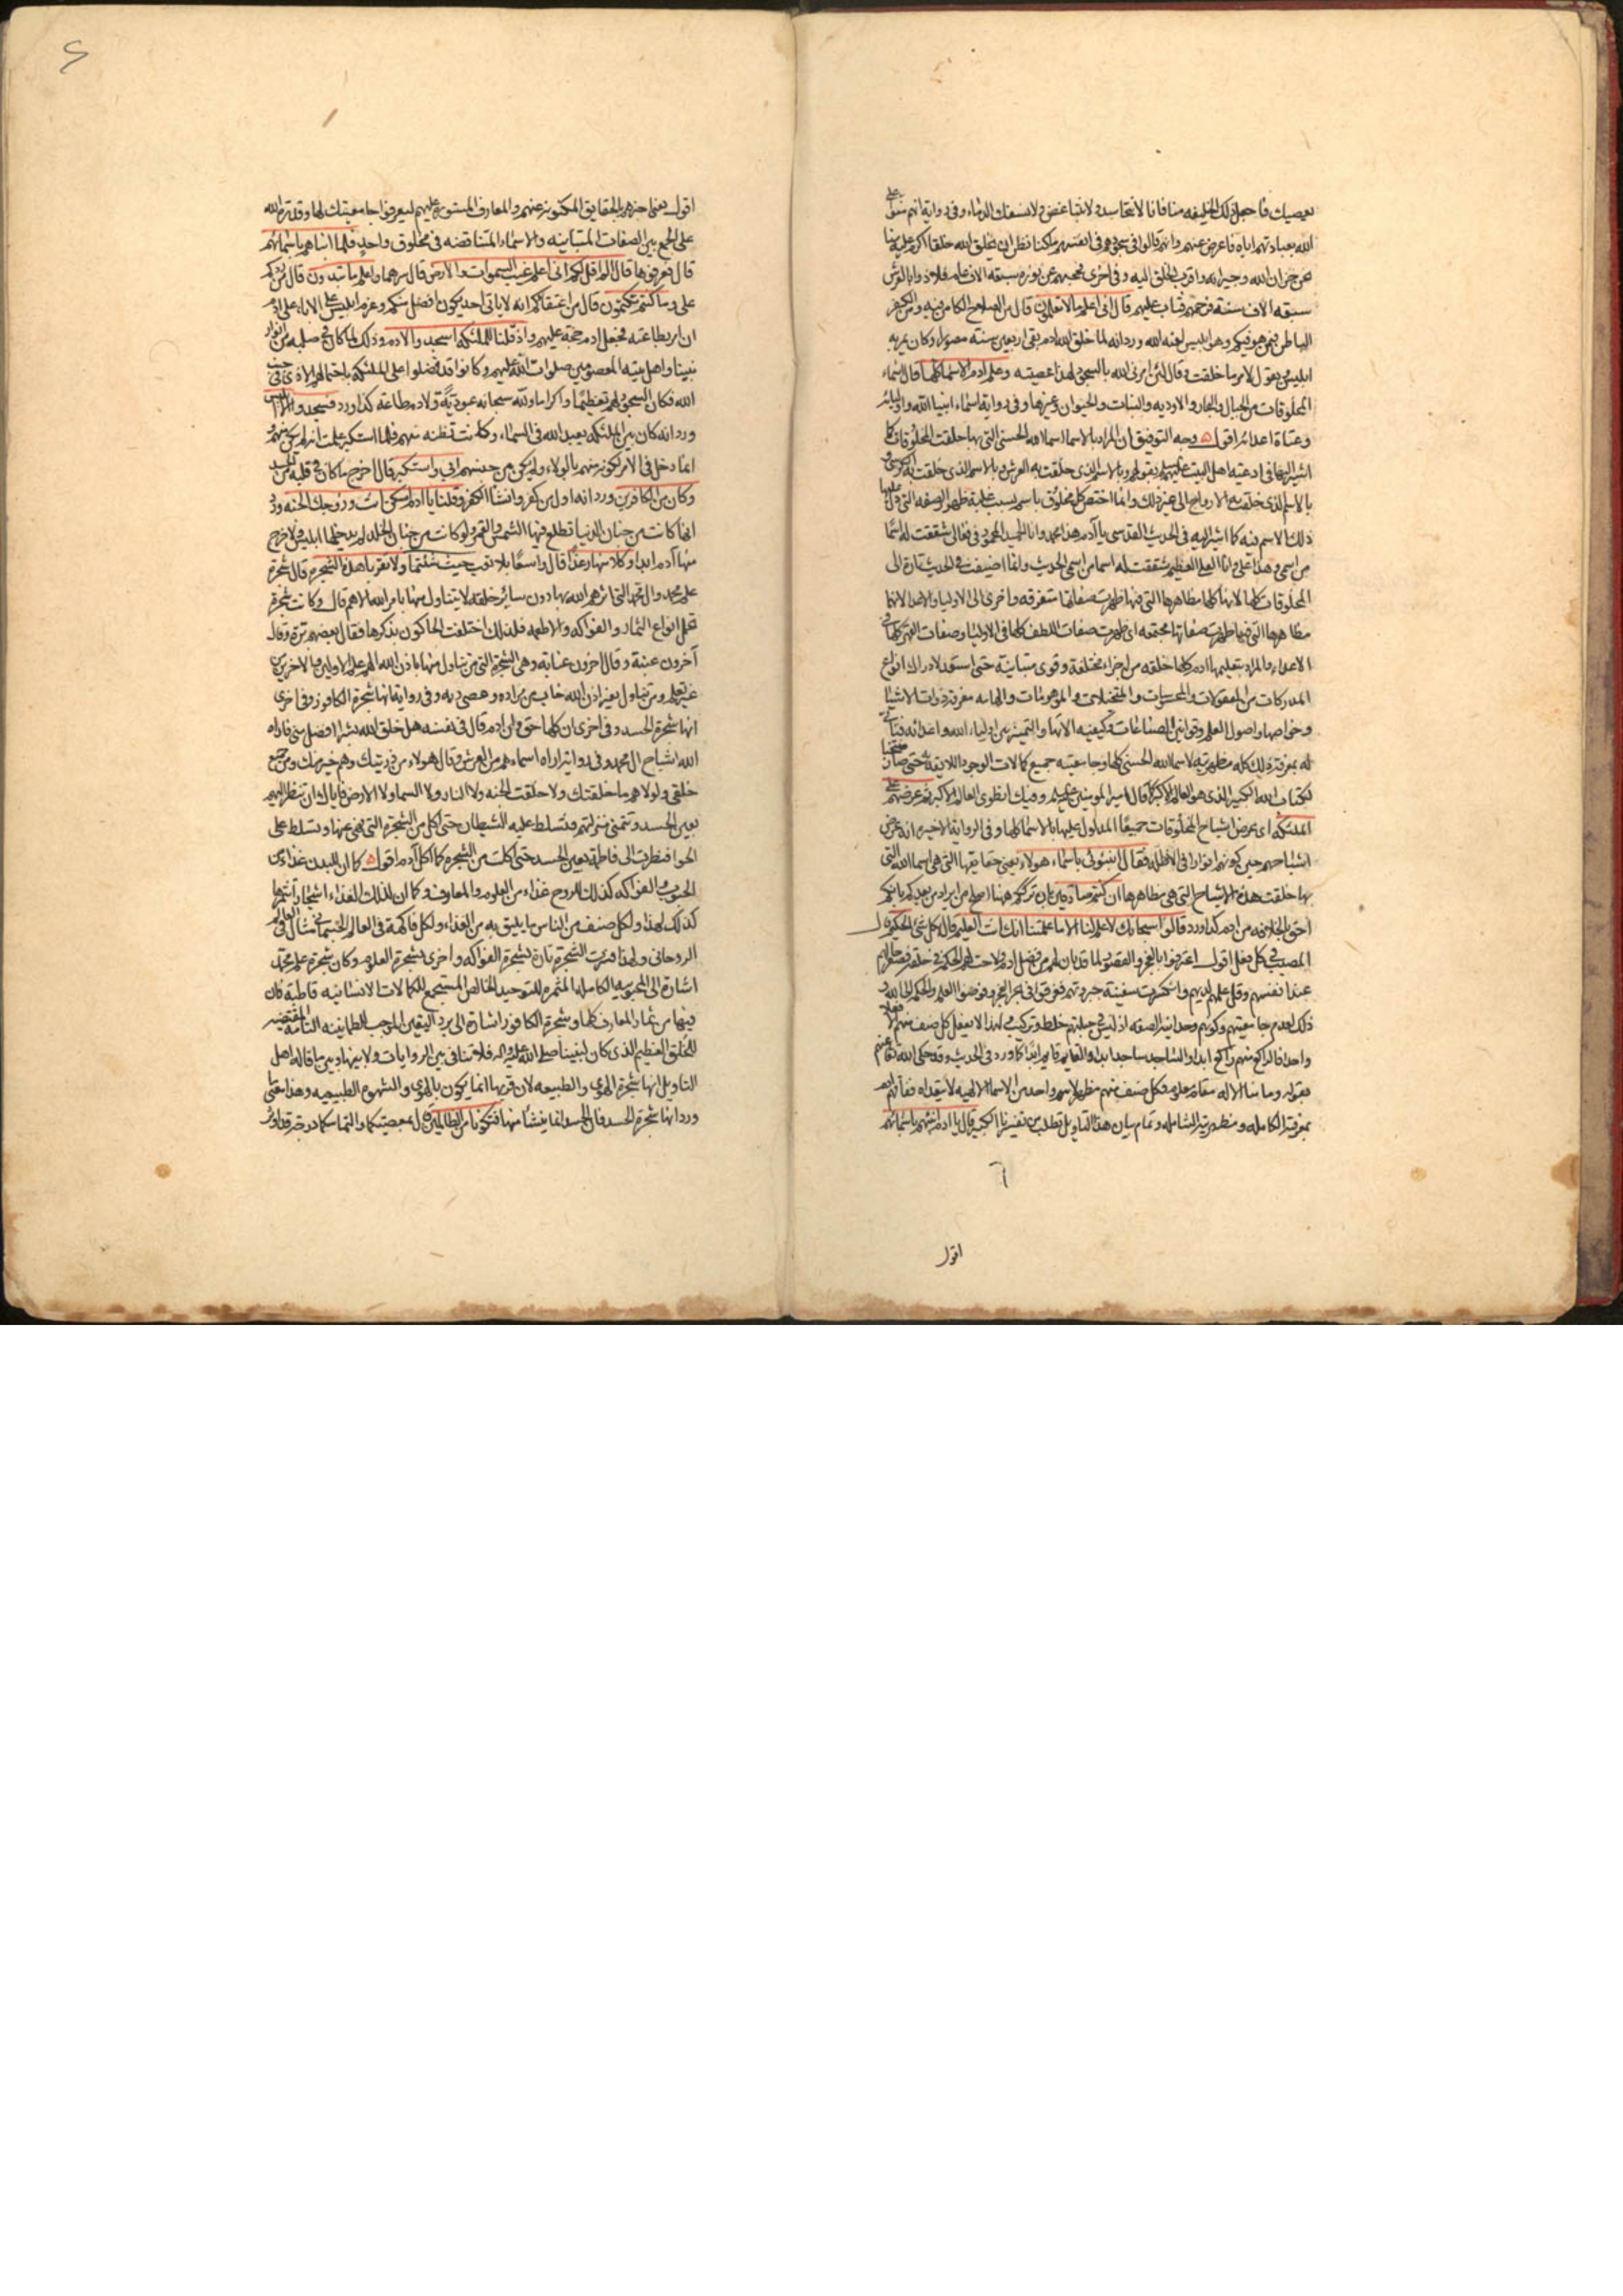 يعصيك فاجعل ذلك الخليفه منا فانا لا نتحاسد ولا نتباغض ولا نسفك الدماء وفي رواية انهم منوا على
الله بعبادتهم اياه فاعرض عنهم وانهم قالوا في سجودهم في انفسهم ما كنا نظن ان يخلق الله خلقا اكرم عليه منا
نحن خزان الله وجيرانه واقرب الخلق اليه وفي اخرى فحجبهم عن نوره سبعة الاف عام فلاذوا بالعرش
سبعة الاف سنة فرحمهم فتاب عليهم قال اني اعلم ما لا تعلمون قال من الصلاح الكامن فيه ومن الكفر
الباطن فيمن هو فيكم وهو ابليس لعنه الله ورد انه لما خلق الله ادم بقي اربعين سنة مصورا وكان يمر به
ابليس ويقول لامر ما خلقت وقال لئن امرني الله بالسجود لهذا عصيته وعلم ادم الاسماء كلها قال اسماء
المخلوقات من الجبال والبحار والاودية والنبات والحيوان وغيرها وفي رواية اسماء انبياء الله واوليائه
وعتاة اعدائه اقول وجه التوفيق ان المراد بالاسماء اسماء الله الحسنى التي بها خلقت المخلوقات كما
اشير اليها في ادعية اهل البيت عليهم السلم بقولهم وبالاسم الذي خلقت به العرش وبالاسم الذي خلقت به الكرسي و
بالاسم الذي خلقت به الارواح الى غير ذلك وانما اختص كل مخلوق باسم بسبب غلبة ظهور الصفة التي دل عليها
ذلك الاسم فيه كما اشير اليه في الحديث القدسي يا آدم هذا محمد وانا الحميد المحمود في فعالي شققت له اسما
من اسمي وهذا علي وانا العلي العظيم شققت له اسما من اسمي الحديث وانما اضيفت في الحديث تارة الى
المخلوقات كلها لانها كلها مظاهرها التي فيها ظهرت صفاتها متفرقه واخرى الى الاولياء والاعداء لانهما
مظاهرها التي فيها ظهرت صفاتها مجتمعه اي ظهرت صفات اللطف كلها في الاولياء وصفات القهر كلها في
الاعداء والمراد بتعليمها ادم كلها خلقه من اجزاء مختلفة وقوى متباينة حتى استعد لادراك انواع
المدركات من المعقولات والمحسوسات والمتخيلات والموهومات والهامه معرفة ذوات الاشياء
وخواصها واصول العلم وقوانين الصناعات وكيفيه الاتها والتمييز بين اولياء الله واعدائه فتاتى
له بمعرفة ذلك كله مظهريته لاسماء الله الحسنى كلها وجامعيته جميع كمالات الوجود اللائقة به حتى صار منتخبا
لكتاب الله الكبير الذي هو العالم الاكبر كما قال امير المومنين عليه السلم وفيك انطوى العالم الاكبر ثم عرضهم على
الملئكه اي عرض اشباح المخلوقات جميعا المدلول عليها بالاسماء كلها وفي الرواية الاخيرة انه عرض
اشباحهم حين كونهم انوارا في الاظلة فقال انبئوني باسماء هولاء يعني حقايقها التي هي اسماء الله التي
بها خلقت هذه الاشباح التي هي مظاهرها ان كنتم صادقين بان ترككم ههنا اصلح من ايراد من بعدكم بانكم
احق بالخلافة من ادم كذا ورد قالوا سبحانك لا علم لنا الا ما علمتنا انك انت العليم قال بكل شي الحكيم قال
المصيب في كل فعل اقول اعترفوا بالعجز والقصور لما قد بان لهم من فضل ادم ولاحت لهم الحكمة في خلقه فصغر حالهم
عند انفسهم وقل علمهم لديهم وانكسرت سفينة جبروتهم فغرقوا في بحر العجز وفوضوا العلم والحكمة الى الله و
ذلك لعدم جامعيتهم وكونهم وحدانية الصفه اذ ليس في جبلتهم خلط وتركيب ولهذا لا يفعل كل صنف منهم الا فعلا
واحدا فالراكع منهم راكع ابدا والساجد ساجد ابدا والقايم قايم ابدا كما ورد في الحديث وقد حكى الله تعالى عنهم
بقوله وما منا الا له مقام معلوم فكل صنف منهم مظهر لاسم واحد من الاسماء الالهية لا يتعداه ففاقهم ادم
بمعرفته الكامله ومظهريته الشامله وتمام بيان هذا التاويل تطلب من تفسيرنا الكبير قال يا ادم انبئهم باسمائهم
اقول
اقول يعني اخبرهم بالحقايق المكنونة عنهم والمعارف المستورة عليهم ليعرفوا جامعيتك لها وقدرة الله
على الجمع بين الصفات المتباينه والاسماء المتناقضه في مخلوق واحد فلما انباهم باسمائهم
قال فعرفوها قال الم اقل لكم اني اعلم غيب السموات والارض قال سرهما واعلم ما تبدون قال من ردكم
علي وما كنتم تكتمون قال من اعتقادكم انه لا ياتي احد يكون افضل منكم وعزم ابليس على الاباء على ادم
ان امر بطاعته فجعل ادم حجة عليهم واذ قلنا للملئكه اسجدوا لادم وذلك لما كان في صلبه من انوار
نبينا واهل بيته المعصومين صلوات الله عليهم وكانوا قد فضلوا على الملئكه باحتمالهم الاذى في جنب
الله فكان السجود لهم تعظيما واكراما ولله سبحانه عبودية ولادم طاعة كذا ورد فسجدوا الا ابليس
ورد انه كان بين الملئكه يعبد الله في السماء وكانت تظنه منهم فلما استكبر علمت انه لم يكن منهم و
انما دخل في الامر لكونه منهم بالولاء ولم يكن من جنسهم ابى واستكبر قال اخرج ما كان في قلبه من الحسد
وكان من الكافرين ورد انه اول من كفر وانشا الكفر وقلنا يا ادم اسكن انت وزوجك الجنه ورد
انها كانت من جنان الدنيا تطلع فيها الشمس والقمر ولو كانت من جنان الخلد لم يدخلها ابليس ولا خرج
منها آدم ابدا وكلا منها رغدا قال واسعا بلا تعب حيث شئتما ولا تقربا هذه الشجره قال شجرة
علم محمد وال محمد التي اثرهم الله بها دون ساير خلقه لا يتناول منها بامر الله الا هم قال وكانت شجرة
تحمل انواع الثمار والفواكه والاطعمه فلذلك اختلفت الحاكون بذكرها فقال بعضهم برة وقال
آخرون عنبة وقال اخرون عنابة وهي الشجرة التي من تناول منها باذن الله الهم علم الاولين والاخرين من
غير تعلم ومن تناول بغير اذن الله خاب من مراده وعصى ربه وفي رواية انها شجرة الكافور وفي اخرى
انها شجرة الحسد وفي اخرى ان كلها حق وان ادم قال في نفسه هل خلق الله بشرا افضل مني فاراه
الله اشباح ال محمد وفي رواية اراه اسماءهم من العرش وقال هولاء من ذريتك وهم خير منك ومن جميع
خلقي ولولاهم ما خلقتك ولا خلقت الجنه ولا النار ولا السما ولا الارض فاياك وان تنظر اليهم
بعين الحسد وتتمنى منزلتهم فتسلط عليه الشيطان حتى اكل من الشجرة التي نهي عنها وتسلط على
الحوا فنظرت الى فاطمة بعين الحسد حتى اكلت من الشجرة كما اكل آدم اقول كما ان للبدن غذاء من
الحبوب والفواكه كذلك للروح غذاء من العلوم والمعارف وكما ان لذلك الغذاء اشجارا تثمرها
كذلك لهذا ولكل صنف من الناس ما يليق به من الغذاء ولكل فاكهة في العالم الجسماني مثال في العالم
الروحاني ولهذا فسرت الشجرة تارة بشجرة الفواكه واخرى بشجرة العلوم وكان شجرة علم محمد
اشارة الى المحبوبية الكاملة المثمرة للتوحيد الخالص المستجمع للكمالات الانسانيه قاطبة فان
فيها من ثمار المعارف كلها وشجرة الكافور اشارة الى برد اليقين الموجب للطمانينه التامة المقتضيه
للخلق العظيم الذي كان لنبينا صلى الله عليه واله فلا تنافي بين الروايات ولا بينها وبين ما قاله اهل
التاويل انها شجرة الهوى والطبيعه لان قربها انما يكون بالهوى والشهوة الطبيعيه وهذا معنى ما
ورد انها شجرة الحسد فان الحسد انما ينشأ منها فتكونا من الظالمين قال بمعصيتكما والتماسكما درجة قد اوثر